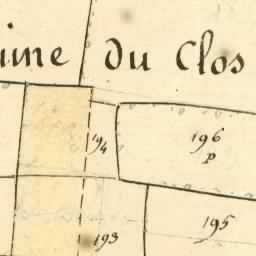 du Clos
194
196
p
195
193